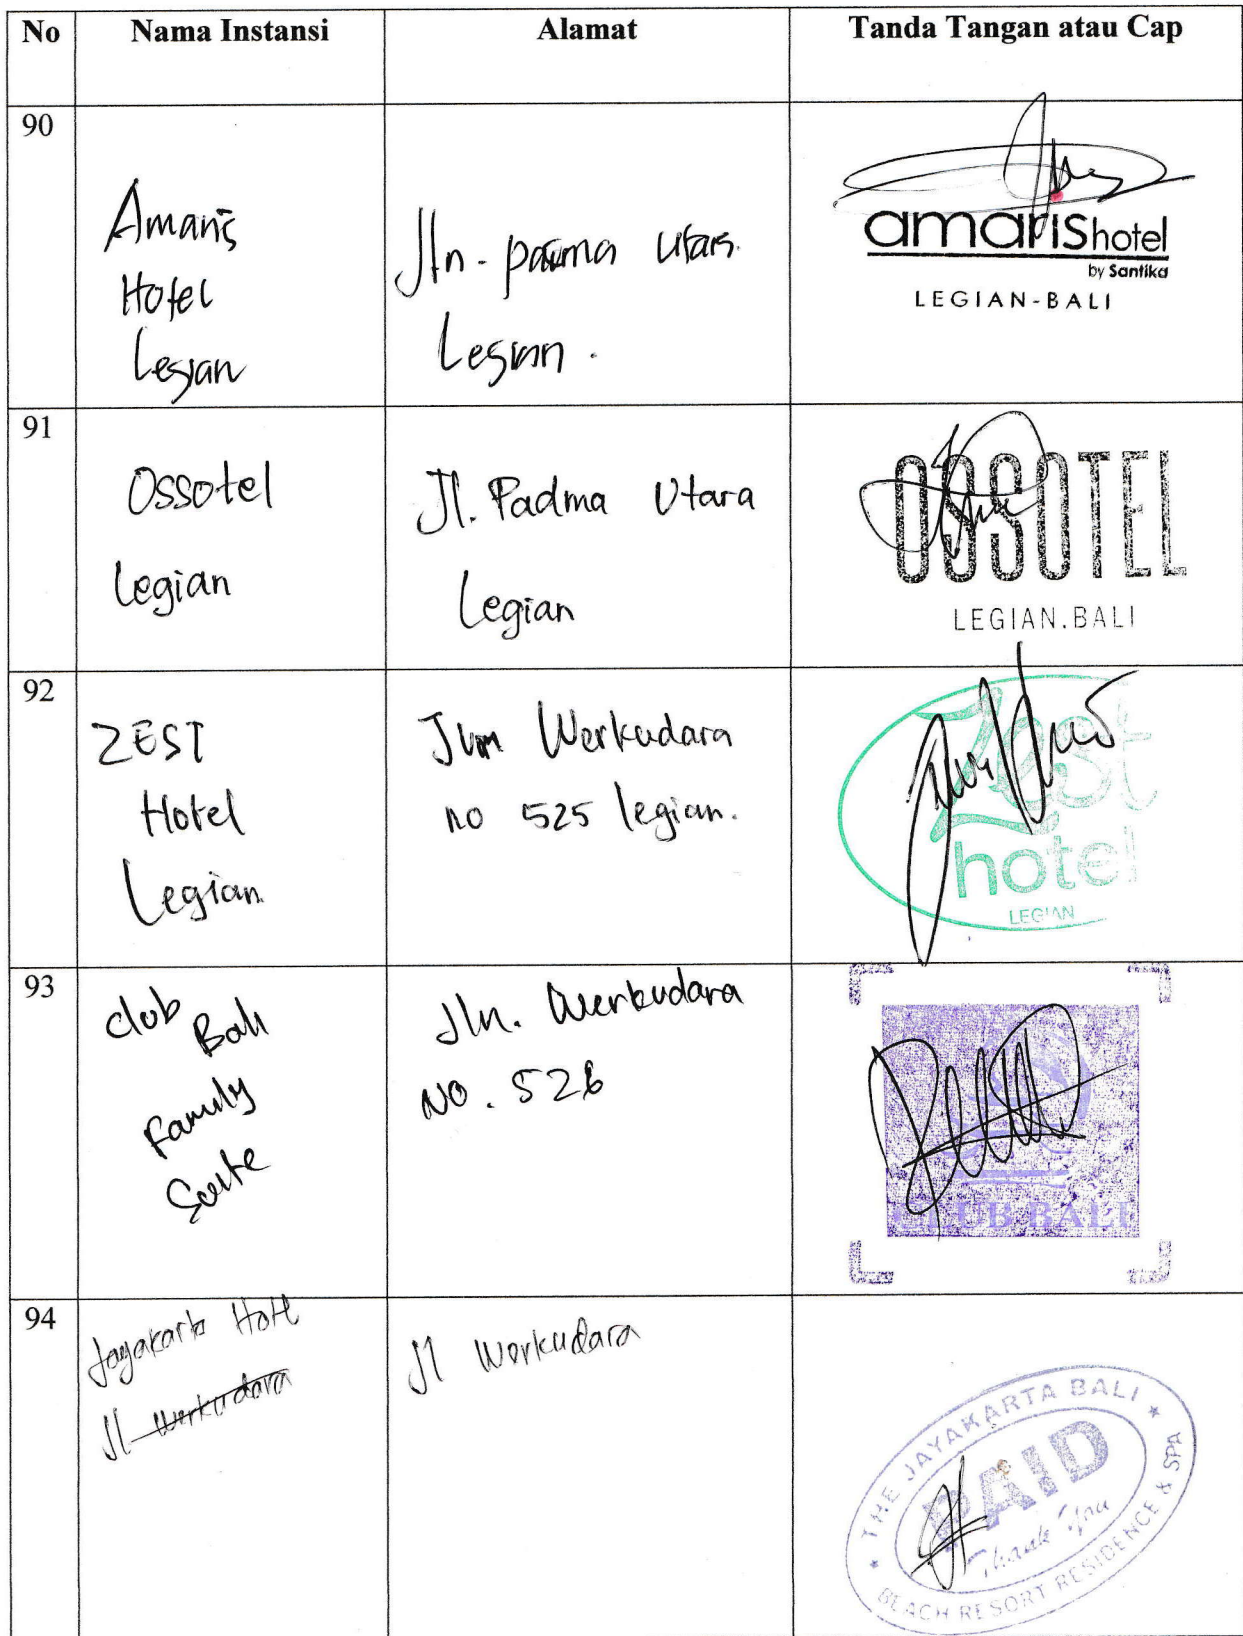 No Nama Instansi Alamat Tanda Tangan atau Cap
90
Amaris
Hotel
Legian
Jln. padma utara
Legian.
amarishotel
by Santika
LEGIAN-BALI
91
Ossotel
Legian
Jl. Padma Utara
Legian
OSSOTEL
LEGIAN.BALI
92
ZEST
Hotel
Legian
Jln Werkudara
no 525 legian.
Zest
hotel
LEGIAN
93
club
Bali
Family
Suite
Jln. Werkudara
NO. 526
CLUB BALI
94
Jayakarta Hotel
Jl Werkudara
Jl Werkudara
THE JAYAKARTA BALI
PAID
Thank You
BEACH RESORT RESIDENCE & SPA